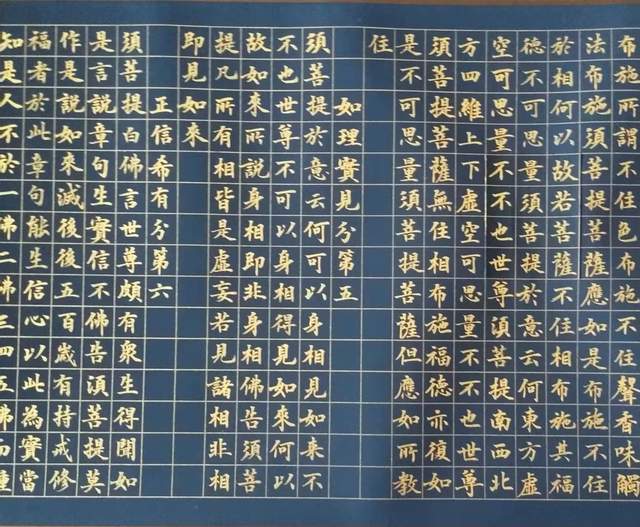 布施所謂不住色布施不住聲香味觸
法布施須菩提菩薩應如是布施不住
於相何以故若菩薩不住相布施其福
德不可思量須菩提於意云何東方虛
空可思量不不也世尊須菩提南西北
方四維上下虛空可思量不不也世尊
須菩提菩薩無住相布施福德亦復如
是不可思量須菩提菩薩但應如所教
住
如理實見分第五
須菩提於意云何可以身相見如來不
不也世尊不可以身相得見如來何以
故如來所說身相即非身相佛告須菩
提凡所有相皆是虛妄若見諸相非相
即見如來
正信希有分第六
須菩提白佛言世尊頗有眾生得聞如
是言說章句生實信不佛告須菩提莫
作是說如來滅後後五百歲有持戒修
福者於此章句能生信心以此為實當
知是人不於一佛二佛三四五佛而種